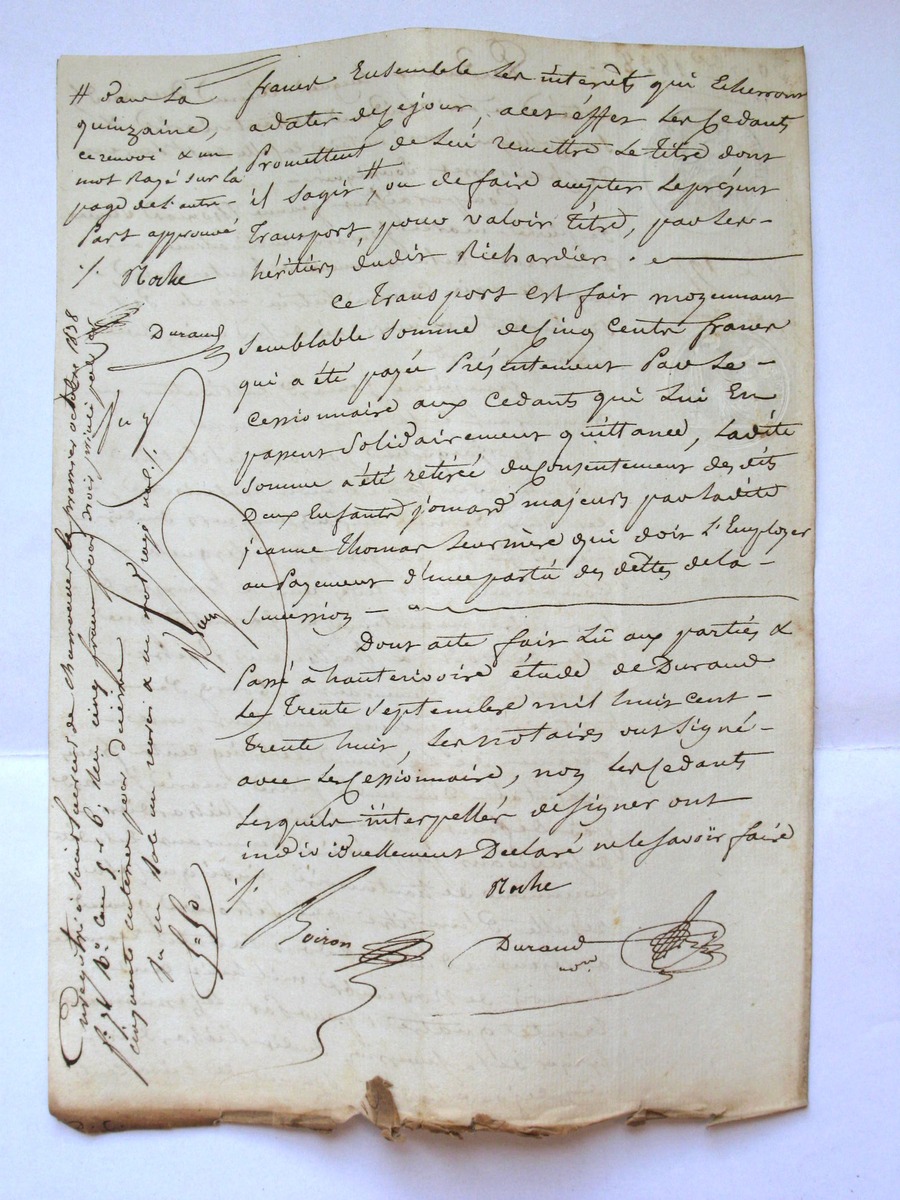 francs Ensemble les intérêts qui Echerront
adater dece jour, acet éffet les Cedants
Promettent de Lui remettre Le titre dont
il sagit #, ou de faire accepter Le présent
Transport, pour valoir titre, par les
héritiers dudit Richardier.
# dans La
quinzaine,
ce renvoi & un
mot Rayé sur la
page de l'autre
Part approuvé
/. Roche
Durand
Ce Transport est fait moyennant
semblable somme de Cinq Cents francs
qui a été payée Présentement Par Le
Cessionnaire aux Cedants qui Lui En
passent Solidairement quittance, Ladite
somme a été retirée du Consentement des dits
Deux Enfants jomard majeurs par Ladite
jeanne Thomas Leur mère qui doit L'Employer
au Payement d'une partie des dettes de la
succession
Dont acte fait Lû aux parties &
Passé à hauterivoire étude de Durand
Le Trente septembre mil huit cent
trente huit, Les notaires ont signé
avec Le Cessionnaire, non Les Cedants
Lesquels interpellés de signer ont
individuellement Declaré ne le savoir faire
/.
Roche
Boiron
Durand
nore
Enregistré à Saint Laurent de chamousset le premier octobre 1838
cinq francs pour
cinquante centimes pour dixième
un renvoi & un mot rayé nul /.